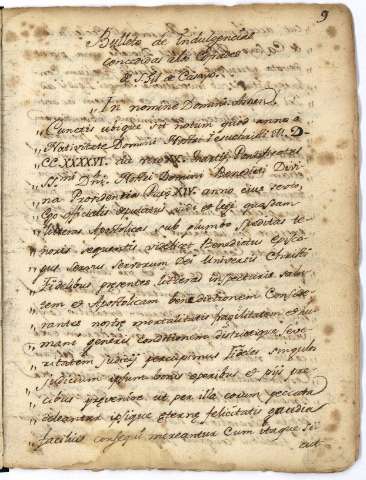 9
Bulleta de Indulgencias
concedidas als Confrares
de S. Gil de
In nomine Domini Amen.
Cunctis ubique sit notum quod anno a
Nativitate Domini Nostri Jesuchristi M.D
CC.XXXXVI. die vero XX. Martij Pontificatus
SS.mi D.ni Nostri Domini Benedicti Divi
na Providentia Papę XIV. anno ejus sexto,
Ego officialis deputatus vidi et legi quasdam
litteras Apostolicas sub plumbo expeditas te
noris sequentis videlicet Benedictus episco
pus servus servorum Dei Universis Christi
fidelibus presentes litteras inspecturis salu
tem et Apostolicam benedictionem Conside
rantes nostrę mortalitatis fragilitatem et hu
mani generis conditionem districtique seve
ritatem judicij percupimus fideles singulos
judicium ipsum bonis operibus et pijs pre
cibus prevenire ut per illa eorum peccata
deleantur ipsique eternę felicitatis gaudia
facilius consequi mereantur Cum itaque si
cut